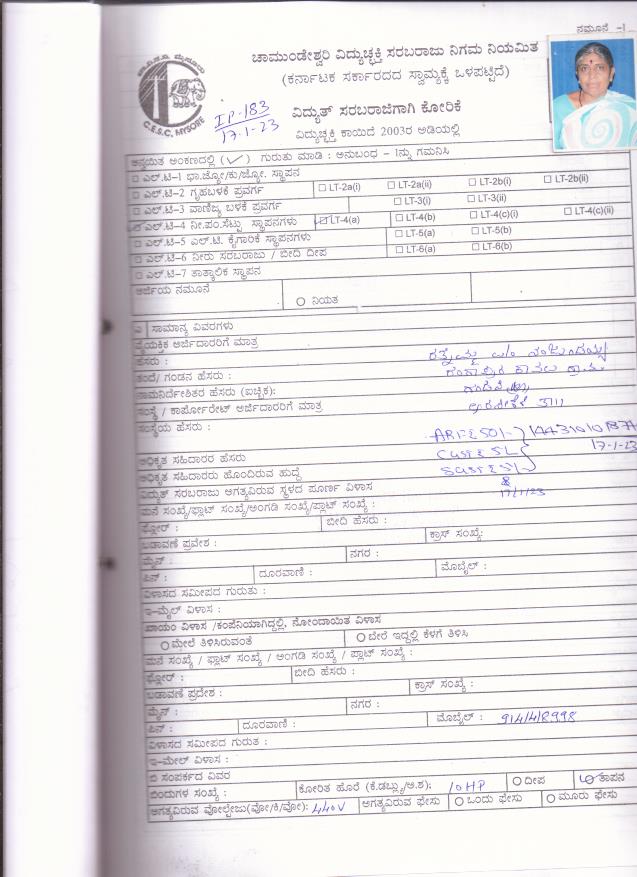 ನಮೂನೆ -1
ಚಾಮುಂಡೇಶ್ವರಿ ವಿದ್ಯುಚ್ಛಕ್ತಿ ಸರಬರಾಜು ನಿಗಮ ನಿಯಮಿತ
(ಕರ್ನಾಟಕ ಸರ್ಕಾರದದ ಸ್ವಾಮ್ಯಕ್ಕೆ ಒಳಪಟ್ಟಿದೆ)
C.E.S.C, MYSORE
IP-183
17-1-23
ವಿದ್ಯುತ್ ಸರಬರಾಜಿಗಾಗಿ ಕೋರಿಕೆ
ವಿದ್ಯುಚ್ಛಕ್ತಿ ಕಾಯಿದೆ 2003ರ ಅಡಿಯಲ್ಲಿ
ಅನ್ವಯಿತ ಅಂಕಣದಲ್ಲಿ (✓) ಗುರುತು ಮಾಡಿ : ಅನುಬಂಧ - 1ನ್ನು ಗಮನಿಸಿ
ಎಲ್.ಟಿ-1 ಭಾ.ಜ್ಯೋ/ಕು/ಜ್ಯೋ. ಸ್ಥಾಪನ
ಎಲ್.ಟಿ-2 ಗೃಹಬಳಕೆ ಪ್ರವರ್ಗ LT-2a(i) LT-2a(ii) LT-2b(i) LT-2b(ii)
ಎಲ್.ಟಿ-3 ವಾಣಿಜ್ಯ ಬಳಕೆ ಪ್ರವರ್ಗ LT-3(i) LT-3(ii)
ಎಲ್.ಟಿ-4 ನೀ.ಪಂ.ಸೆಟ್ಟು ಸ್ಥಾಪನಗಳು LT-4(a) LT-4(b) LT-4(c)(i) LT-4(c)(ii)
ಎಲ್.ಟಿ-5 ಎಲ್.ಟಿ. ಕೈಗಾರಿಕೆ ಸ್ಥಾಪನಗಳು LT-5(a) LT-5(b)
ಎಲ್.ಟಿ-6 ನೀರು ಸರಬರಾಜು / ಬೀದಿ ದೀಪ LT-6(a) LT-6(b)
ಎಲ್.ಟಿ-7 ತಾತ್ಕಾಲಿಕ ಸ್ಥಾಪನ
ಅರ್ಜಿಯ ನಮೂನೆ
ನಿಯತ
ಎ ಸಾಮಾನ್ಯ ವಿವರಗಳು
ವೈಯಕ್ತಿಕ ಅರ್ಜಿದಾರರಿಗೆ ಮಾತ್ರ
ಹೆಸರು :
ತಂದೆ/ ಗಂಡನ ಹೆಸರು :
ನಾಮನಿರ್ದೇಶಿತರ ಹೆಸರು (ಐಚ್ಛಿಕ):
ಸಂಸ್ಥೆ / ಕಾರ್ಪೋರೇಟ್ ಅರ್ಜಿದಾರರಿಗೆ ಮಾತ್ರ
ಸಂಸ್ಥೆಯ ಹೆಸರು :
17-1-23
ಅಧಿಕೃತ ಸಹಿದಾರರ ಹೆಸರು
ಅಧಿಕೃತ ಸಹಿದಾರರು ಹೊಂದಿರುವ ಹುದ್ದೆ
ವಿದ್ಯುತ್ ಸರಬರಾಜು ಅಗತ್ಯವಿರುವ ಸ್ಥಳದ ಪೂರ್ಣ ವಿಳಾಸ
17/1/23
ಮನೆ ಸಂಖ್ಯೆ/ಫ್ಲಾಟ್ ಸಂಖ್ಯೆ/ಅಂಗಡಿ ಸಂಖ್ಯೆ/ಪ್ಲಾಟ್ ಸಂಖ್ಯೆ :
ಫ್ಲೋರ್ : ಬೀದಿ ಹೆಸರು :
ಬಡಾವಣೆ ಪ್ರವೇಶ : ಕ್ರಾಸ್ ಸಂಖ್ಯೆ:
ಮೈನ್ : ನಗರ :
ಪಿನ್ : ದೂರವಾಣಿ : ಮೊಬೈಲ್ :
ವಿಳಾಸದ ಸಮೀಪದ ಗುರುತು :
ಇ-ಮೈಲ್ ವಿಳಾಸ :
ಖಾಯಂ ವಿಳಾಸ /ಕಂಪೆನಿಯಾಗಿದ್ದಲ್ಲಿ, ನೋಂದಾಯಿತ ವಿಳಾಸ
ಮೇಲೆ ತಿಳಿಸಿರುವಂತೆ ಬೇರೆ ಇದ್ದಲ್ಲಿ ಕೆಳಗೆ ತಿಳಿಸಿ
ಮನೆ ಸಂಖ್ಯೆ / ಫ್ಲಾಟ್ ಸಂಖ್ಯೆ / ಅಂಗಡಿ ಸಂಖ್ಯೆ / ಪ್ಲಾಟ್ ಸಂಖ್ಯೆ :
ಫ್ಲೋರ್ : ಬೀದಿ ಹೆಸರು :
ಬಡಾವಣೆ ಪ್ರದೇಶ : ಕ್ರಾಸ್ ಸಂಖ್ಯೆ :
ಮೈನ್ : ನಗರ :
ಪಿನ್ : ದೂರವಾಣಿ : ಮೊಬೈಲ್ :
ವಿಳಾಸದ ಸಮೀಪದ ಗುರುತ :
ಇ-ಮೇಲ್ ವಿಳಾಸ :
ಬಿ ಸಂಪರ್ಕದ ವಿವರ
ಬಿಂದುಗಳ ಸಂಖ್ಯೆ : ಕೋರಿತ ಹೊರೆ (ಕೆ.ಡಬ್ಲ್ಯು/ಅ.ಶ): 10HP ದೀಪ ತಾಪನ
ಅಗತ್ಯವಿರುವ ವೋಲ್ಟೇಜು(ವೋ/ಕಿ/ವೋ): 440V ಅಗತ್ಯವಿರುವ ಫೇಸು ಒಂದು ಫೇಸು ಮೂರು ಫೇಸು